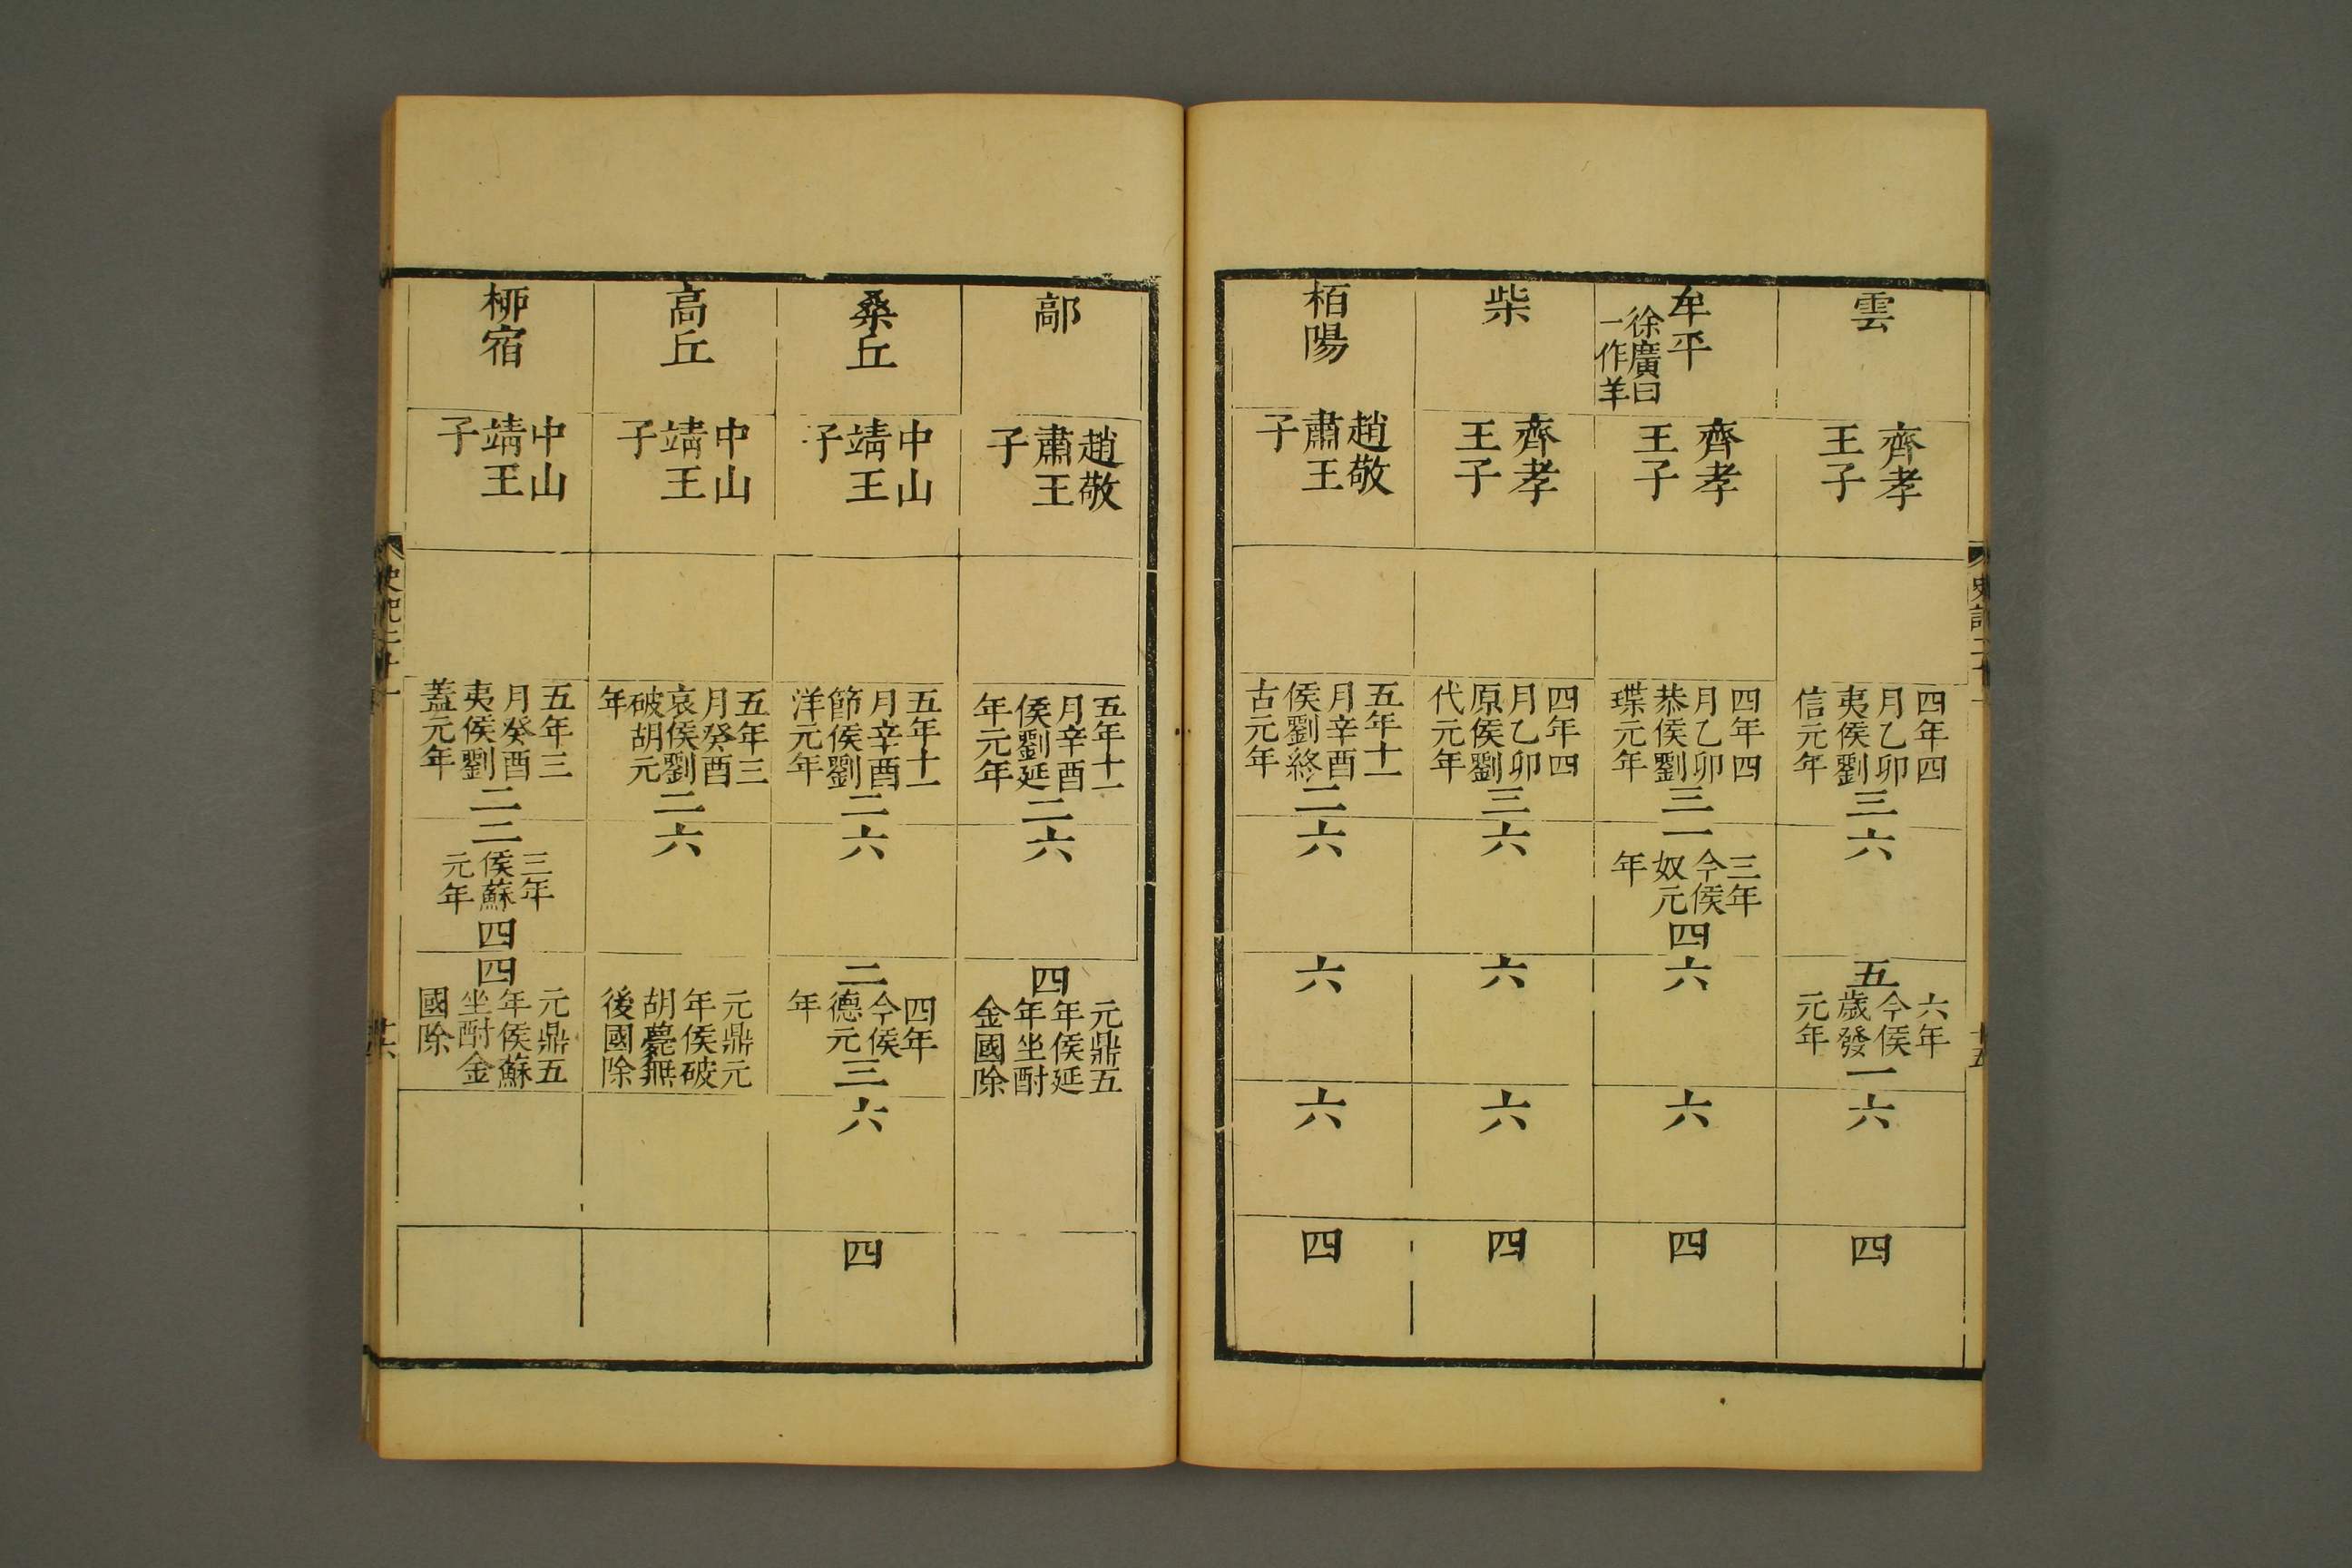 雲
齊孝
王子
四年四
月乙卯
夷侯劉
信元年
三
六
五
六年
今侯
歲發
元年
一
六
四
牟平
徐廣曰
一作羊
齊孝
王子
四年四
月乙卯
恭侯劉
渫元年
三
二
三年
今侯
奴元
年
四
六
六
四
柴
齊孝
王子
四年四
月乙卯
原侯劉
代元年
三
六
六
六
四
栢陽
趙敬
肅王
子
五年十一
月辛酉
侯劉終
古元年
二
六
六
六
四
鄗
趙敬
肅王
子
五年十一
月辛酉
侯劉延
年元年
二
六
四
元鼎五
年侯延
年坐酎
金國除
桑丘
中山
靖王
子
五年十一
月辛酉
節侯劉
洋元年
二
六
二
四年
今侯
德元
年
三
六
四
高丘
中山
靖王
子
五年三
月癸酉
哀侯劉
破胡元
年
二
六
元鼎元
年侯破
胡薨無
後國除
栁宿
中山
靖王
子
五年三
月癸酉
夷侯劉
蓋元年
二
二
三年
侯蘇
元年
四
四
元鼎五
年侯蘇
坐酎金
國除